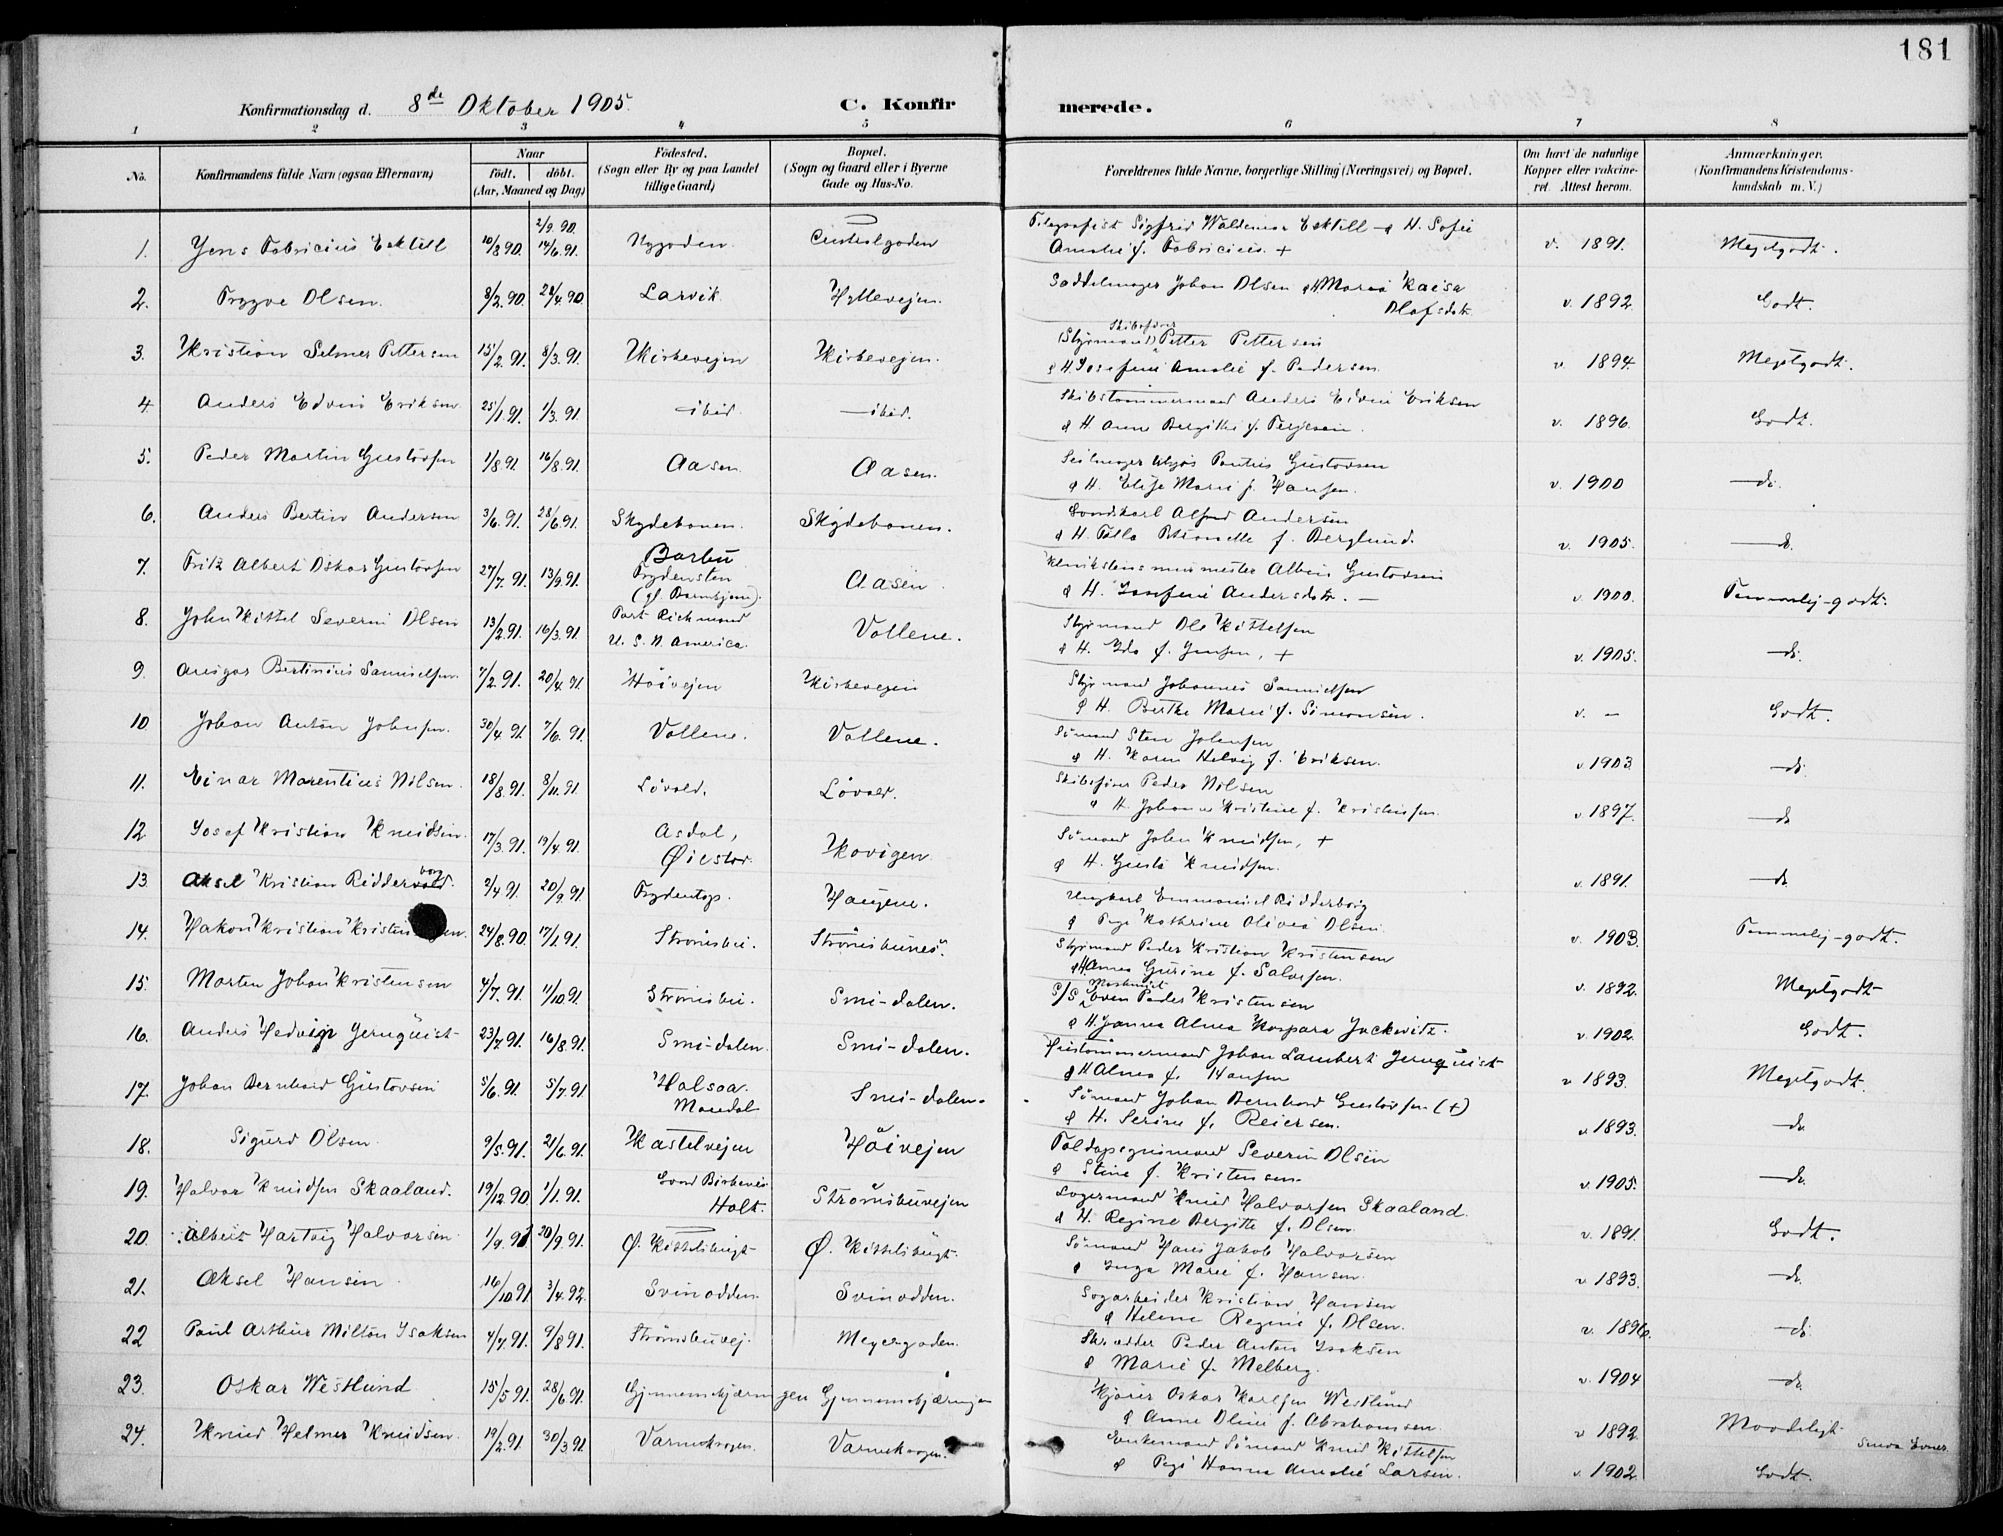 181
Konfirmationsdag d. 8de Oktober 1905.
C. Konfirmerede.
1 2 3 4 5 6 7 8
No.
Konfirmandens fulde Navn (ogsaa Efternavn)
Naar
födt. döbt.
(Aar, Maaned og Dag)
Födested.
(Sogn eller By og paa Landet
tillige Gaard)
Bopæl.
(Sogn og Gaard eller i Byerne
Gade og Hus-No.
Forældrenes fulde Navne, borgerlige Stilling (Næringsvei) og Bopæl.
Om havt de naturlige
Kopper eller vakcine-
ret. Attest herom.
Anmærkninger.
(Konfirmandens Kristendoms-
kundskab m. V.)
1. Jens Fabricius Esktill 10/8 90. 2/9. 90. 14/6. 91. Nygaden. Centralgaden
Telegrafist Sigfrid Waldemar Esktill & H. Sofie
Amalie f. Fabricius. + v. 1891. Megetgodt.
2. Trygve Olsen. 8/2. 90. 24/4. 90 Larvik. Hyllevejen.
Saddelmager Johan Olsen & H Maria Kaisa
Olafsdtr. v. 1892. Godt.
3. Kristian Selmer Pettersen 15/2. 91. 8/3. 91. Kirkevejen Kirkevejen.
Skibsfører
(Styrmand) Petter Pettersen
& H. Josefine Amalie f. Pedersen. v. 1894. Megetgodt.
4. Anders Edvin Eriksen 25/1 91. 1/3. 91 — ibid. — ibid.
Skibstømmermand Anders Edvin Eriksen
& H. Anne Bergitte f. Terjesen. v. 1896. Godt.
5. Peder Martin Gustavsen 1/8 91. 16/8. 91. Aasen. Aasen.
Seilmager Pontus Gustavsen
& H. Elise Marie f. Hansen. v. 1900 — do.
6. Anders Bertin Andersen 3/6. 91. 28/6 91. Skydebanen. Skydebanen.
Alfred Andersen
& H. Petronelle f. Berglund. v. 1905. — do.
7. Fritz Albert Oskar Gustavsen 27/7. 91. 13/9. 91. Barbu
Frydensten Aasen
Albin Gustavsen
& H. Josefine Andersdtr. — v. 1900. Temmelig-godt.
8. John Kittel Severin Olsen 13/2. 91. 16/3. 91. Port Richmond
U. S. N. America. Vollene.
Styrmand Ole Kittelsen
& H. Ida f. Jensen, + v. 1905. — do.
9. Ansgar Bertinius Samuelsen. 7/2. 91. 20/4. 91. Høivejen Kirkevejen
Styrmand Johannes Samuelsen
& H. Berthe Marie f. Simonsen. v. — Godt.
10 Johan Anton Johnsen. 30/4 91. 7/6. 91. Vollene. Vollene.
Sömand Sten Johnsen
& H. Karen Helvig f. Eriksen. v. 1903. — do.
11. Einar Marentius Nilsen. 18/8. 91. 8/11. 91. Løvold. Løvold.
Skibsfører Peder Nilsen
& H. Johanne Kristine f. Kristensen. v. 1897. — do
12. Josef Kristian Knudsen. 17/3. 91. 19/4. 91. Asdal,
Øiestad. Kovigen
Sömand John Knudsen, +
& H. Gusta Knudsen. v. 1891. — do.
13. Aksel Kristian Riddervold. borg 2/4 91. 20/9. 91 Frydentop. Haugene.
Ungkarl Emmanuel Ridderborg
& Pige Kathrine Olivia Olsen. v. 1903. Temmelig-godt.
14. Hakon Kristian Kristensen. 24/8. 90. 17/1. 91. Strømsbu. Strømsbunes.
Styrmand Peder Kristian Kristensen
& H. Anna Gurine f. Salvesen. v. 1892. Megetgodt
15. Marten Johan Kristensen 4/7. 91. 11/10. 91. Strømsbu. Smi-dalen.
Maskinist
S/S Even Peder Kristensen
& H. Janna Alma Kaspara Jackwitz. v. 1902. Godt.
16. Anders Hedvig Jernquist 23/7. 91. 16/8. 91. Smi-dalen. Smi-dalen.
Hustømmermand Johan Lambert Jernquist
& H Alma f. Hansen v. 1893. Megetgodt.
17. Johan Bernhard Gustavsen 5/6. 91. 5/7. 91. Halsaa.
Mandal Smi-dalen.
Sömand Johan Bernhard Gustavsen (+)
& H. Serine f. Reiersen. v. 1893. — do
18. Sigurd Olsen. 9/5. 91. 21/6. 91. Kastelvejen Høivejen
Toldopsynsmand Severin Olsen
& Stine f. Kristensen. v. 1905. — do.
19. Halvor Knudsen Skaaland. 19/12. 90. 1/1. 91.
Holt. Strømsbuvejen
Lagermand Knud Halvorsen Skaaland.
& H. Regine Bergitte f. Olsen. v. 1891. Godt.
20. Albert Hartvig Halvorsen. 1/9. 91 20/9. 91. Ø. Kittelsbugt. Ø. Kittelsbugt.
Sömand Hans Jakob Halvorsen
& Inga Marie f. Hansen. v. 1893. — do.
21. Aksel Hansen. 16/10. 91 3/4. 92. Svinodden. Svinodden.
Sagarbeider Kristian Hansen
& Helene Regine f. Olsen. v. 1896. — do.
22 Paul Arthur Milton Isaksen 4/7. 91. 9/8 91. Strømsbuvej. Meyergaden.
Skrædder Peder Anton Isaksen
& Marie f. Melberg. v. 1904 — do.
23. Oskar Westlund 15/5 91. 28/6 91. Gjennemskjæringen Gjennemskjæringen
Kjører Oskar Karlsen Westlund
& Anne Oline f. Abrahamsen. v. 1892. Maadeligt
24. Knud Helmer Knudsen. 19/2. 91. 30/3. 91 Varnekrogen. Varnekrogen.
Enkemand Sömand Knud Kittelsen
& Pige Hanna Amalie Larsen. v. 1902. Godt.